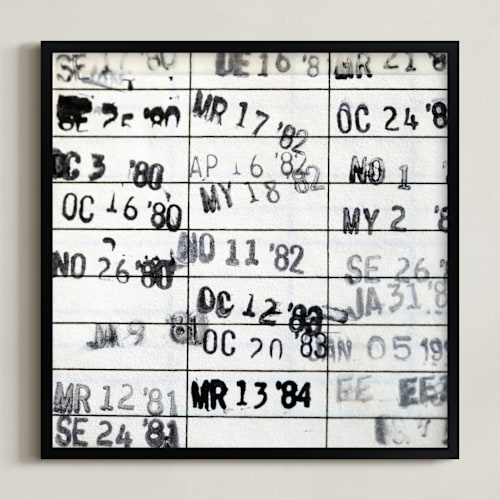 SE
SE 25 '80
OC 3 '80
OC 16 '80
NO 26 '80
JA 9 '81
MR 12 '81
SE 24 '81
DE 16 '8
MR 17 '82
AP 16 '82
MY 18 '82
NO 11 '82
OC 12 '83
OC 20 '83
MR 13 '84
MR 21 '8
OC 24 '8
NO 1
MY 2 '8
SE 26 '
JA 31 '8
JAN 05 199